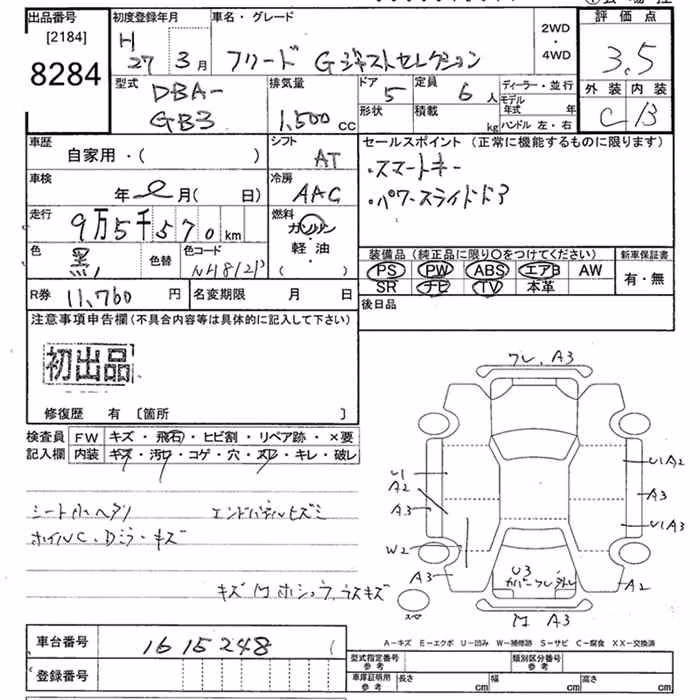 出品番号 初度登録年月 車名・グレード 評価点
[2184]
8284
H 27 3月 フリード Gジャストセレクション
2WD
・
4WD
3.5
型式 DBA-
GB3
排気量
1,500 cc
ドア 5 定員 6 人
形状 積載 kg
ディーラー・並行
モデル
年式 年
ハンドル 左・右
外装 内装
C B
車歴
自家用・( )
シフト
AT
セールスポイント (正常に機能するものに限ります)
・スマートキー
・パワースライドドア
車検
年 2月( 日)
冷房
AAC
走行 9万5千570km
燃料
ガソリン
軽油
( )
色 黒 色替 色コード NH812P
装備品 (純正品に限り〇をつけてください) 新車保証書
PS PW ABS エアB AW
SR ナビ TV 本革
有・無
R券 11,760 円 名変期限 月 日
後日品
注意事項申告欄(不具合内容等は具体的に記入して下さい)
初出品
修復歴 有 [箇所 ]
検査員
記入欄
FW キズ・飛石・ヒビ割・リペア跡・×要
内装 キズ・汚れ・コゲ・穴・スレ・キレ・破レ
ホイルC.Dミラ・キズ
ワレ.A3
U1
A2
A3
W2
A3
U1A2
A3
U1A3
A2
U3
A3
スペア
A-キズ E-エクボ U-凹み W-補修跡 S-サビ C-腐食 XX-交換済
車台番号 1615248
登録番号
型式指定番号
参考
類別区分番号
参考
車庫証明用
参考
長さ cm 幅 cm 高さ cm